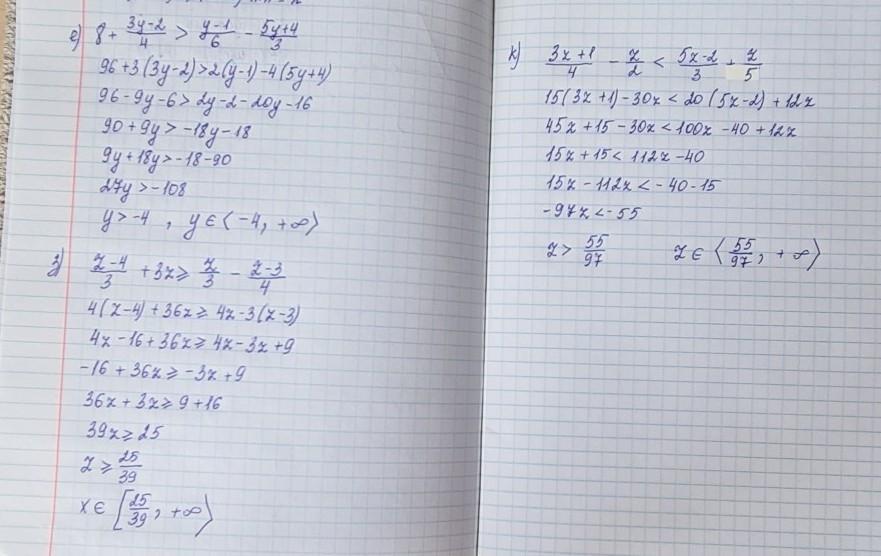 е) 8 + (3y-2)/4 > (y-1)/6 - (5y+4)/3
96+3(3y-2)>2(y-1)-4(5y+4)
96-9y-6>2y-2-20y-16
90+9y>-18y-18
9y+18y>-18-90
27y>-108
y>-4 , y∈⟨-4, +∞⟩
з) (z-4)/3 + 3z ≥ z/3 - (z-3)/4
4(z-4)+36z≥4z-3(z-3)
4z-16+36z≥4z-3z+9
-16+36z≥-3z+9
36z+3z≥9+16
39z≥25
z≥25/39
x∈[25/39, +∞⟩
к) (3z+1)/4 - z/2 < (5z-2)/3 + z/5
15(3z+1)-30z<20(5z-2)+12z
45z+15-30z<100z-40+12z
15z+15<112z-40
15z-112z<-40-15
-97z<-55
z>55/97 z∈⟨55/97, +∞⟩